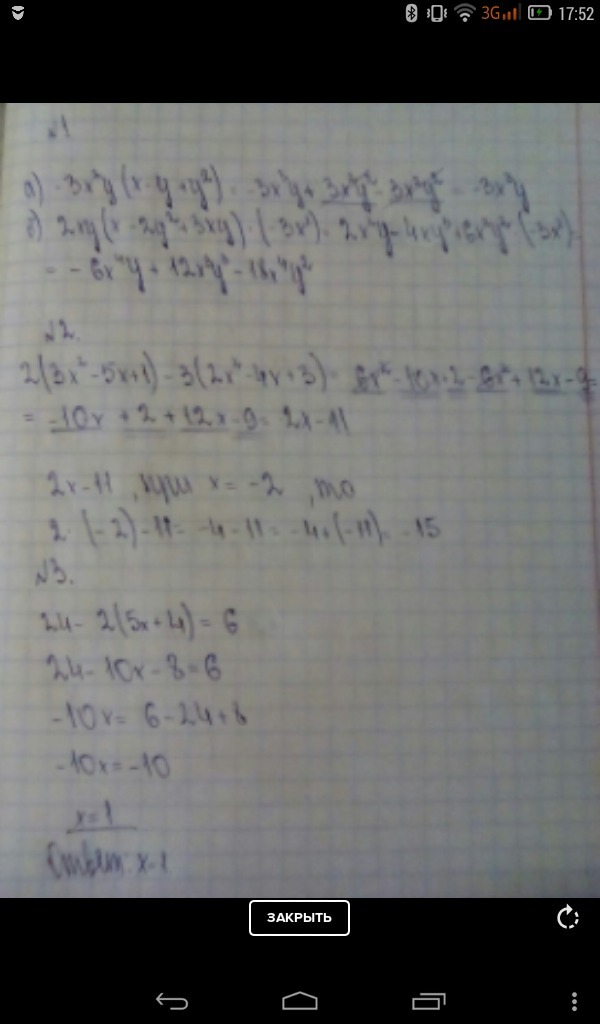 3G 17:52
№1
а) -3x³y(x-y+y²)= -3x³y+3x²y²-3x²y²= -3x³y
б) 2xy(x-2y²+3xy)·(-3x³)= 2x²y-4xy³+6x²y²·(-3x³)=
= -6x⁴y+12x³y³-18x⁴y²
№2.
2(3x²-5x+1)-3(2x²-4x+3)= 6x²-10x+2-6x²+12x-9=
= -10x+2+12x-9= 2x-11
2x-11, при x=-2, то
2·(-2)-11= -4-11= -4+(-11)= -15
№3.
24-2(5x+4)=6
24-10x-8=6
-10x= 6-24+8
-10x=-10
x=1
Ответ: x=1
ЗАКРЫТЬ